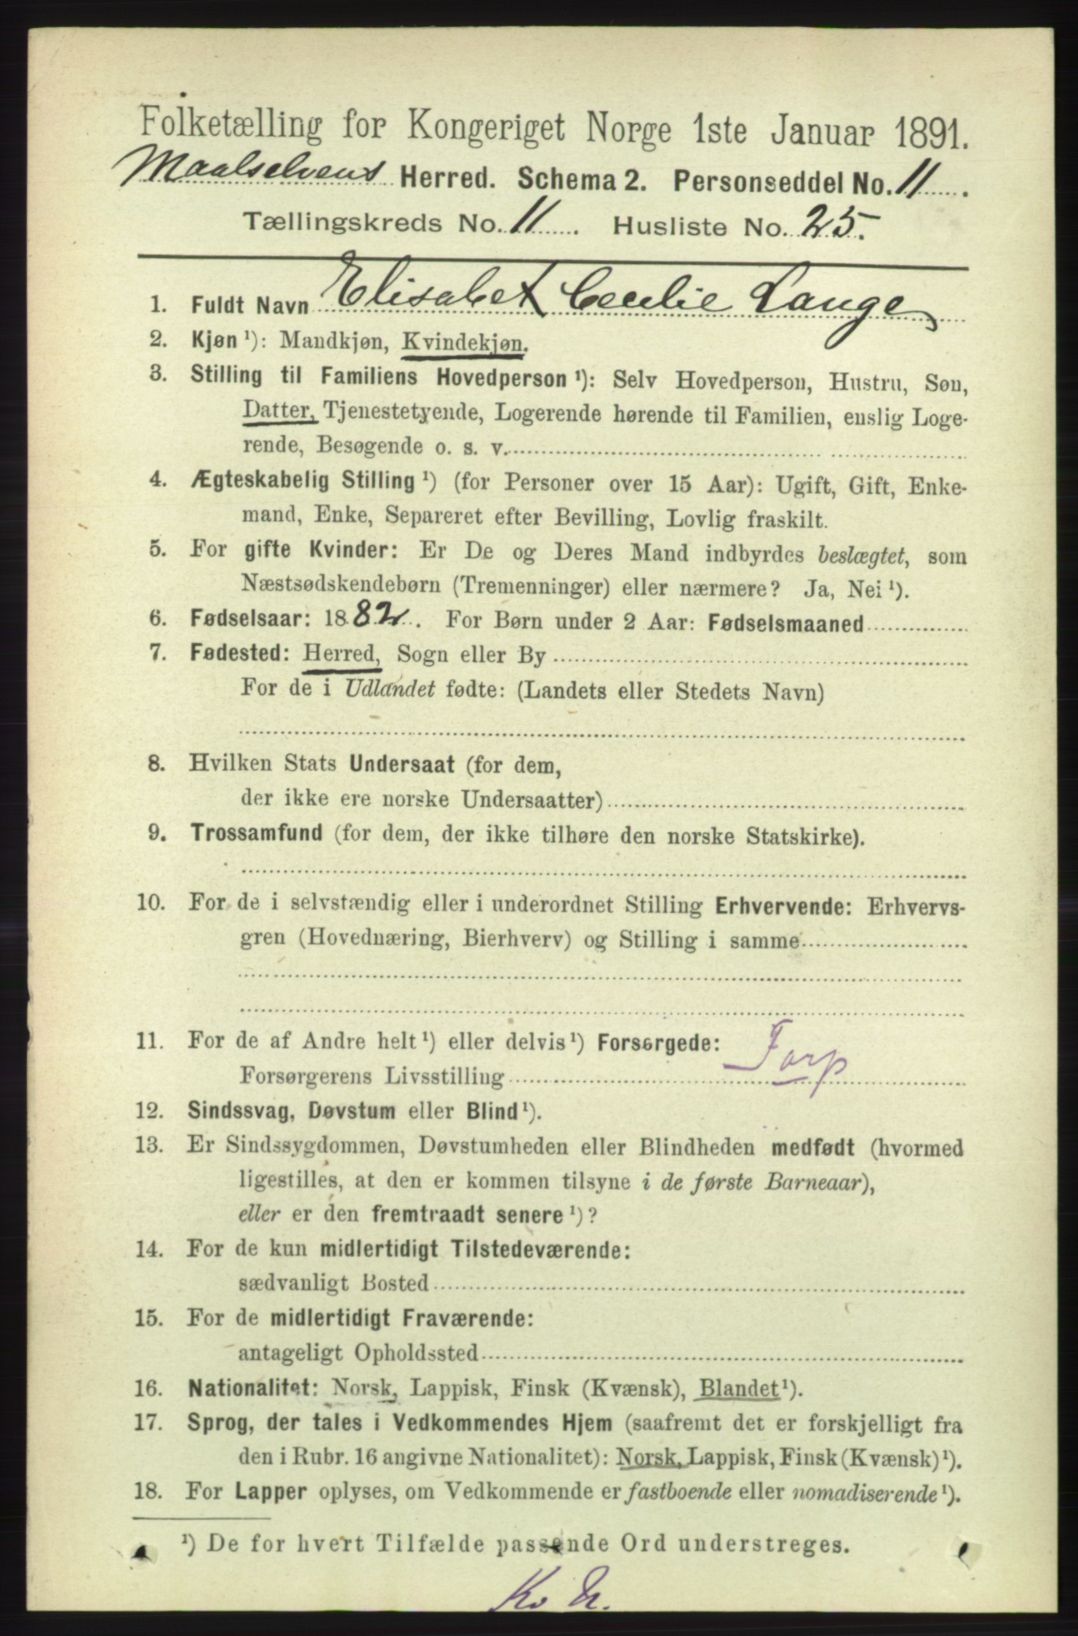 Folketælling for Kongeriget Norge 1ste Januar 1891.
Maalselvens Herred. Schema 2. Personseddel No. 11.
Tællingskreds No. 11. Husliste No. 25.
1. Fuldt Navn Elisabet Cecilie Lange
2. Kjøn ¹): Mandkjøn, Kvindekjøn.
3. Stilling til Familiens Hovedperson ¹): Selv Hovedperson, Hustru, Søn,
Datter, Tjenestetyende, Logerende hørende til Familien, enslig Loge-
rende, Besøgende o. s. v.
4. Ægteskabelig Stilling ¹) (for Personer over 15 Aar): Ugift, Gift, Enke-
mand, Enke, Separeret efter Bevilling, Lovlig fraskilt.
5. For gifte Kvinder: Er De og Deres Mand indbyrdes beslægtet, som
Næstsødskendebørn (Tremenninger) eller nærmere? Ja, Nei ¹).
6. Fødselsaar: 1882. For Børn under 2 Aar: Fødselsmaaned
7. Fødested: Herred, Sogn eller By
For de i Udlandet fødte: (Landets eller Stedets Navn)
8. Hvilken Stats Undersaat (for dem,
der ikke ere norske Undersaatter)
9. Trossamfund (for dem, der ikke tilhøre den norske Statskirke).
10. For de i selvstændig eller i underordnet Stilling Erhvervende: Erhvervs-
gren (Hovednæring, Bierhverv) og Stilling i samme
11. For de af Andre helt ¹) eller delvis ¹) Forsørgede:
Forsørgerens Livsstilling Forp
12. Sindssvag, Døvstum eller Blind ¹).
13. Er Sindssygdommen, Døvstumheden eller Blindheden medfødt (hvormed
ligestilles, at den er kommen tilsyne i de første Barneaar),
eller er den fremtraadt senere ¹)?
14. For de kun midlertidigt Tilstedeværende:
sædvanligt Bosted
15. For de midlertidigt Fraværende:
antageligt Opholdssted
16. Nationalitet: Norsk, Lappisk, Finsk (Kvænsk), Blandet ¹).
17. Sprog, der tales i Vedkommendes Hjem (saafremt det er forskjelligt fra
den i Rubr. 16 angivne Nationalitet): Norsk, Lappisk, Finsk (Kvænsk) ¹).
18. For Lapper oplyses, om Vedkommende er fastboende eller nomadiserende ¹).
¹) De for hvert Tilfælde passende Ord understreges.